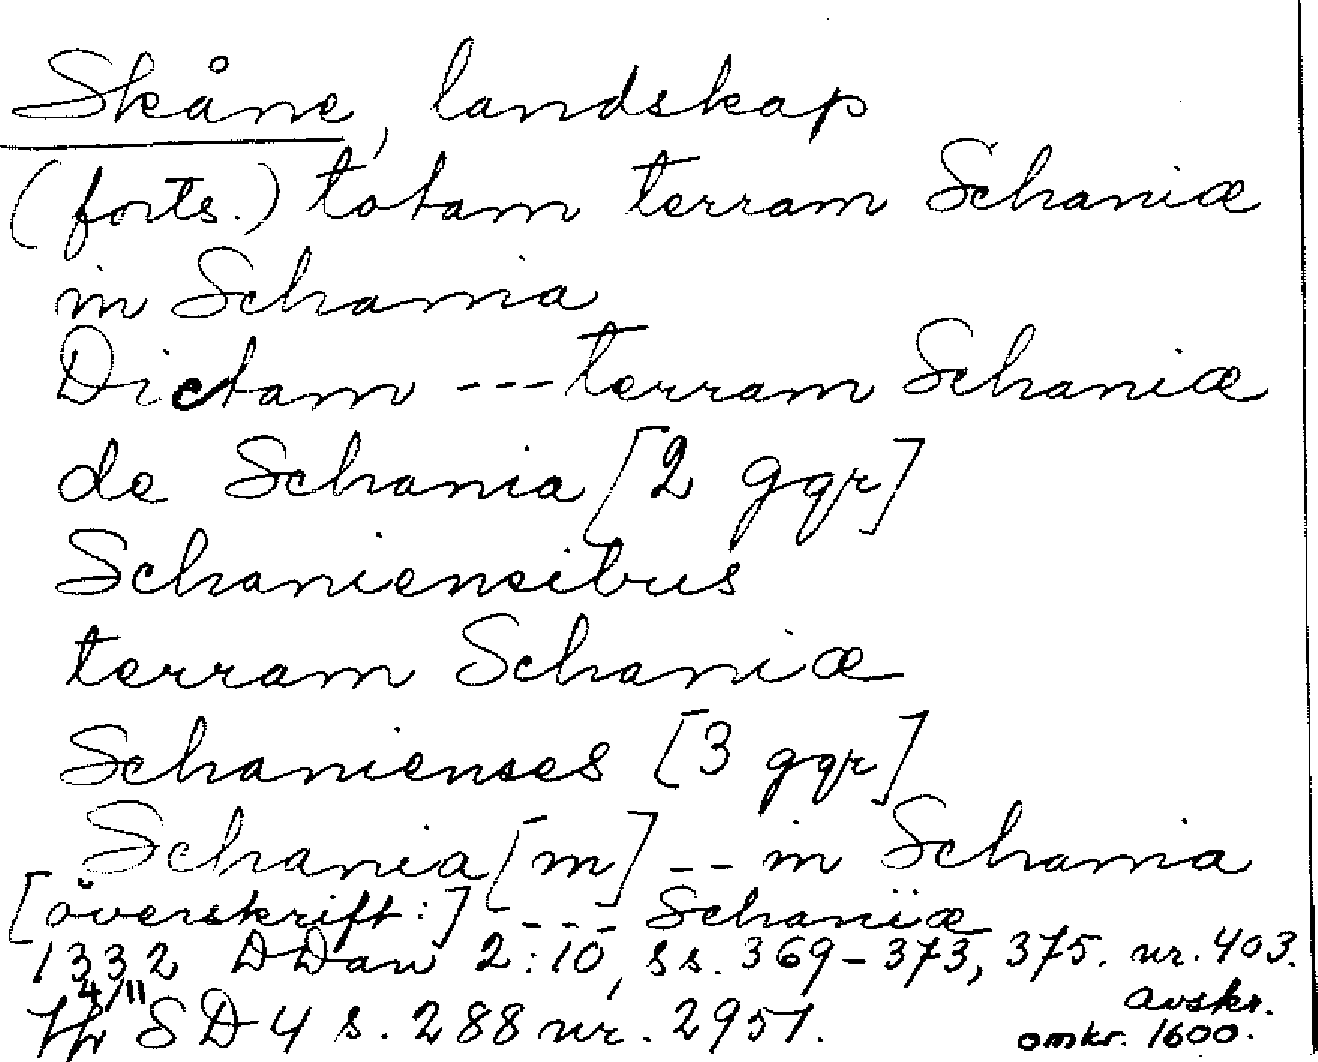 Skåne, landskap
(forts.) totam terram Schaniæ
in Schania
Dictam --- terram Schaniæ
de Schania [2 ggr]
Schaniensibus
terram Schaniæ
Schanienses [3 ggr]
Schania[m] -- in Schania
[överskrift:] --- Schaniæ
1332 DDan 2:10, ss. 369-373, 375. nr. 403.
4/11 avskr.
Jfr SD 4 s. 288 nr. 2951. omkr. 1600.